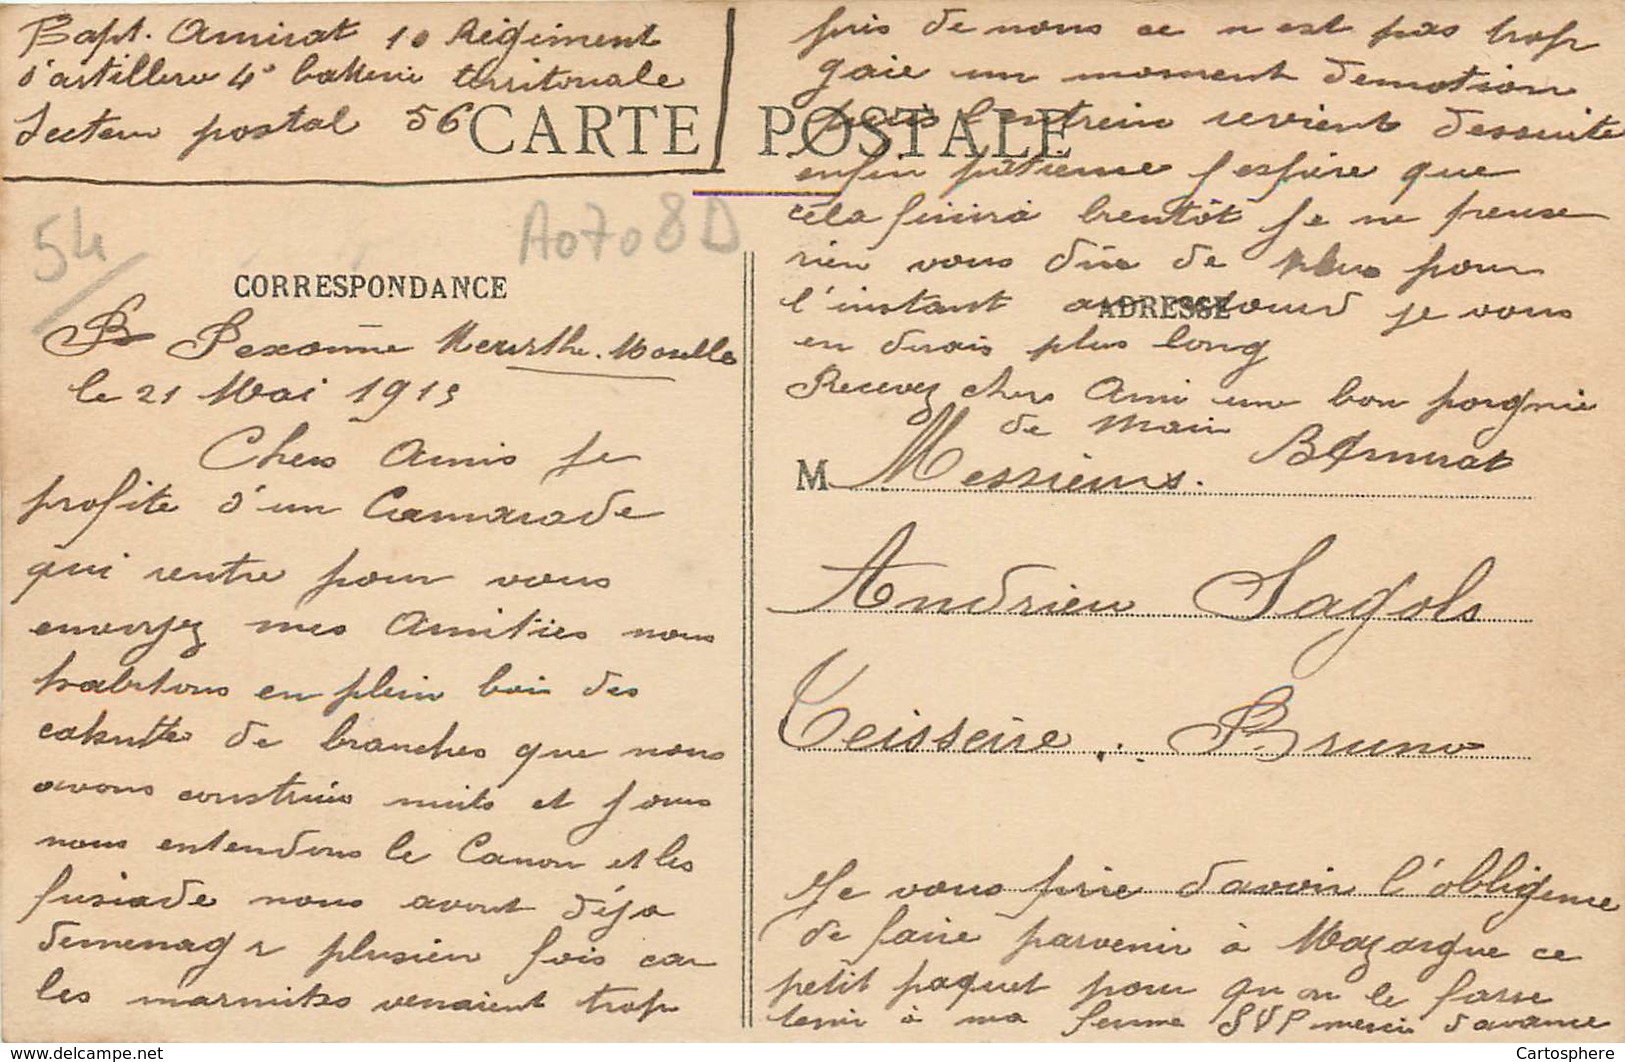 Bapt. Amirat 10 Régiment
d'artillerie 4e batterie territoriale
Secteur postal 56
CARTE POSTALE
54
A0708D
CORRESPONDANCE
Pexonne Meurthe. Moselle
le 21 Mai 1915
Chers Amis je
profite d'un Camarade
qui rentre pour vous
envoyez mes Amitiés nous
habitons en plein bois des
cahutte de branches que nous
avons construis nuits et jours
nous entendons le Canon et les
fusiade nous avont déja
demenagr plusieu fois car
les marmites venaient trop
pris de nous ce n est pas trop
gaie un moment demotion
puis l'entrein revient dessuite
enfin patience j espère que
cela finira bientôt je ne peuse
rien vous dire de plus pour
l'instant au retour je vous
en dirais plus long
Recevez chers Ami une bon poignie
de main
BAmirat
ADRESSE
M Messieurs.
Andrieu Sagols
Teisseire. Bruno
Je vous prie davoir l'obligence
de faire parvenir à Mazargue ce
petit paquet pour qu on le fasse
tenir à ma femme SVP merci d'avance
Cartosphere